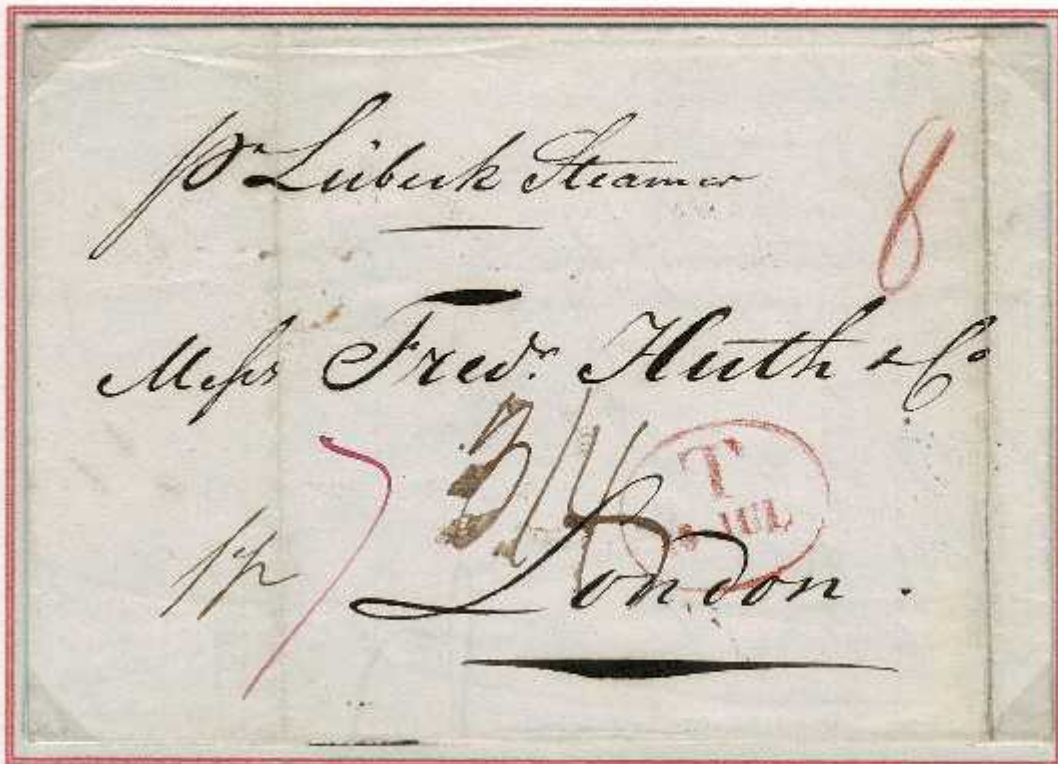 pr Lübeck Steamer
8
Messrs Fredk. Huth & Co
3/4
T
JUL
7
London.